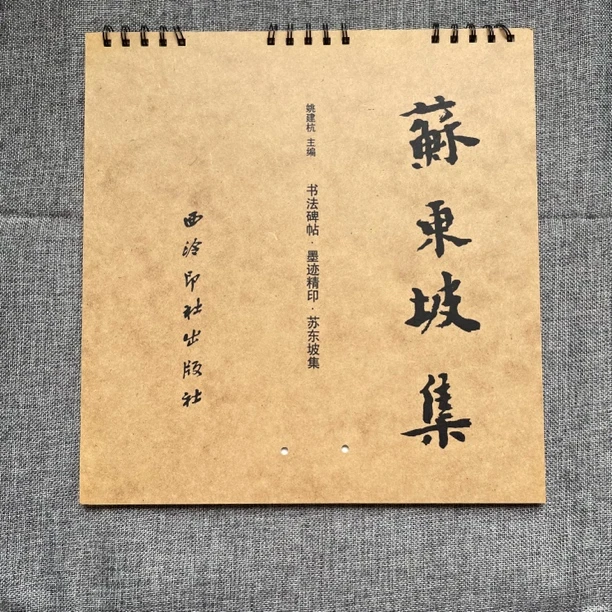 蘇東坡集
姚建杭 主编
书法碑帖·墨迹精印·苏东坡集
西泠印社出版社